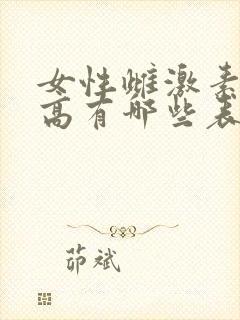 女性雌激素
高有哪些表
茆斌